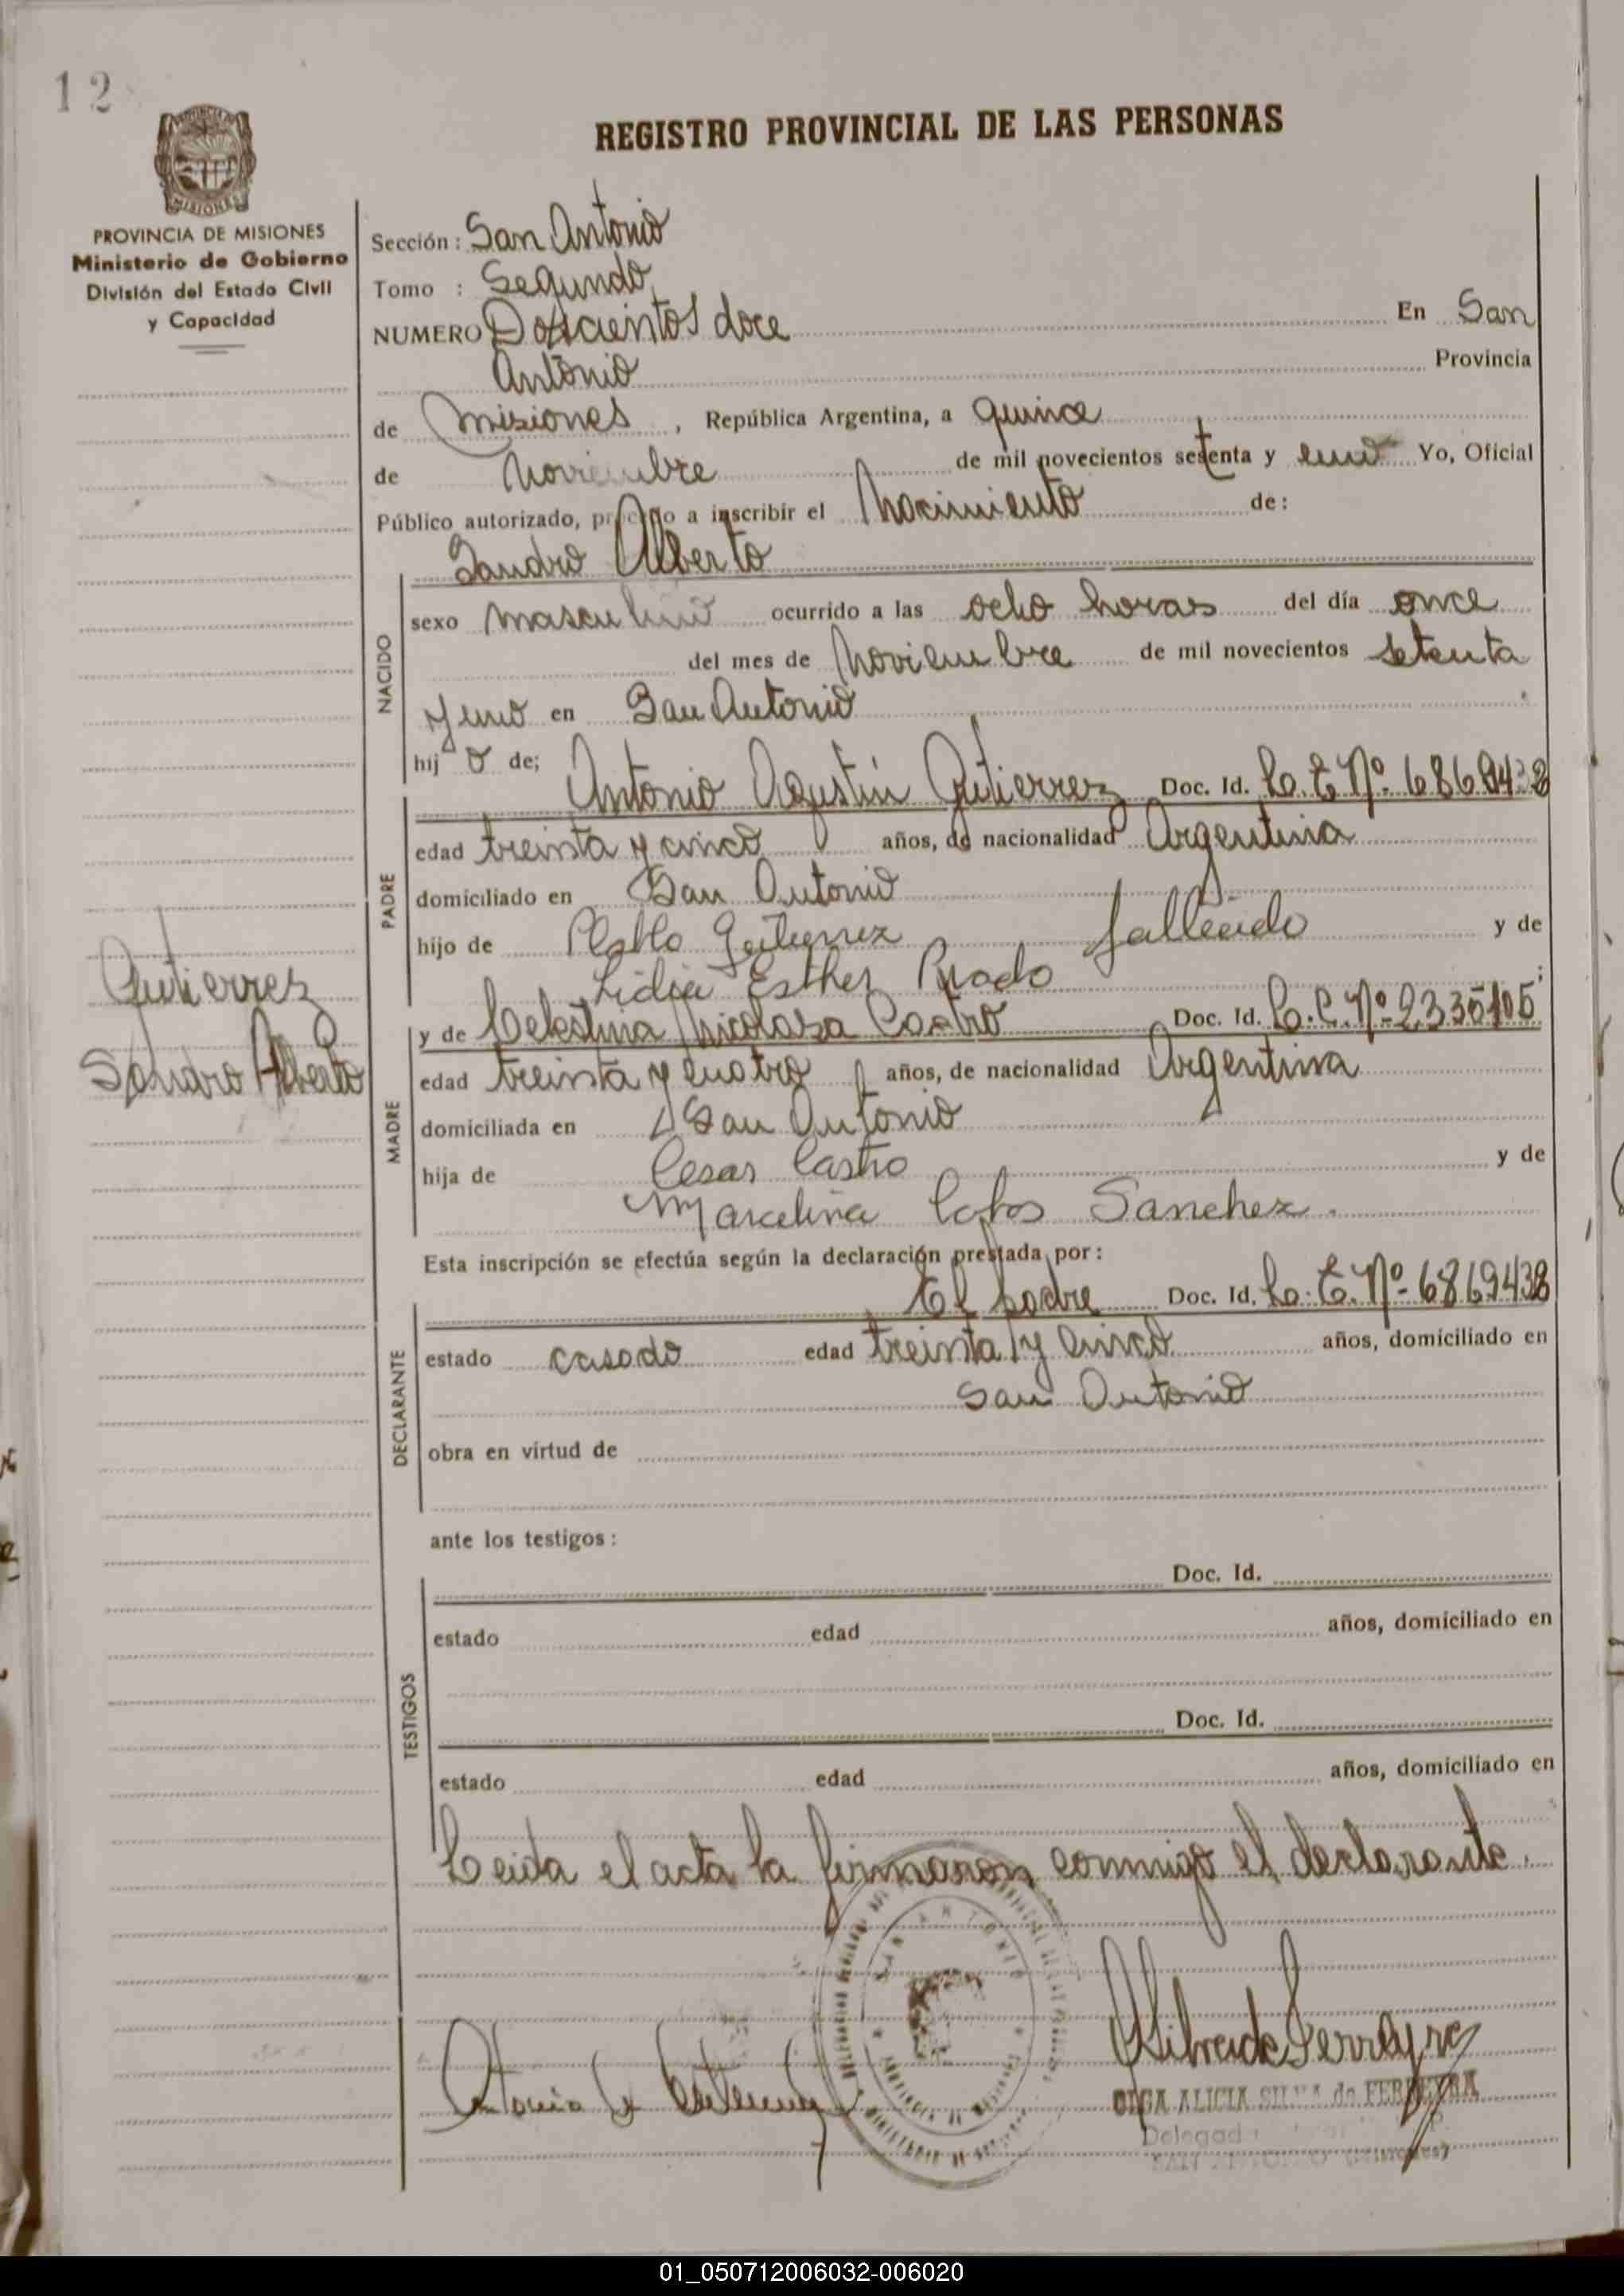 12
REGISTRO PROVINCIAL DE LAS PERSONAS
MISIONES
PROVINCIA DE MISIONES
Ministerio de Gobierno
División del Estado Civil
y Capacidad
Sección: San Antonio
Tomo : Segundo
NUMERO Doscientos doce En San
Antonio Provincia
de Misiones, República Argentina, a quince
de Noviembre de mil novecientos setenta y uno Yo, Oficial
Público autorizado, procedo a inscribir el Nacimiento de:
Sandro Alberto
NACIDO
sexo masculino ocurrido a las ocho horas del día once
del mes de Noviembre de mil novecientos setenta
y uno en San Antonio
hij o de;
Antonio Agustín Gutierrez Doc. Id. L. E. Nº 6869438
PADRE
edad treinta y cinco años, de nacionalidad Argentina
domiciliado en San Antonio
hijo de Pablo Gutierrez fallecido y de
Lidia Esther Prado
Gutierrez
Sandro Alberto
y de Celestina Nicolasa Castro Doc. Id. L. C. Nº 2.335105
MADRE
edad treinta y cuatro años, de nacionalidad Argentina
domiciliada en San Antonio
hija de Cesar Castro y de
Marcelina Sanchez.
Esta inscripción se efectúa según la declaración prestada por:
El padre Doc. Id. L. E. Nº 6869438
DECLARANTE
estado casado edad treinta y cinco años, domiciliado en
San Antonio
obra en virtud de
ante los testigos:
TESTIGOS
Doc. Id.
estado edad años, domiciliado en
Doc. Id.
estado edad años, domiciliado en
Leida el acta la firmaron conmigo el declarante.
SAN ANTONIO
OLGA ALICIA SILVA de FERREYRA
Delegad
SAN ANTONIO (Misiones)
01_050712006032-006020